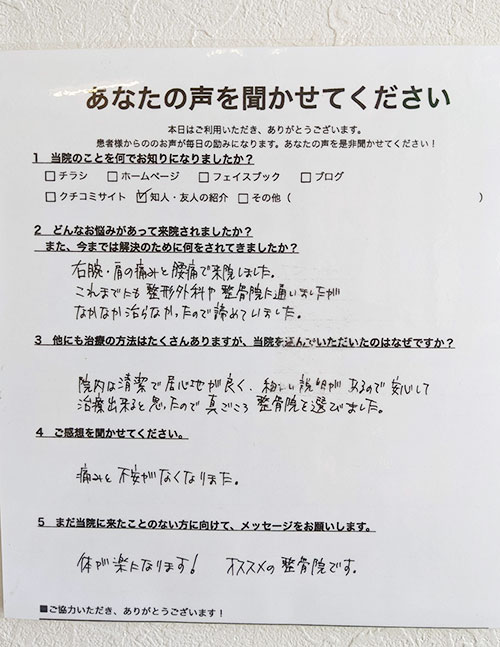 あなたの声を聞かせてください
本日はご利用いただき、ありがとうございます。
患者様からののお声が毎日の励みになります。あなたの声を是非聞かせてください！
1 当院のことを何でお知りになりましたか？
□チラシ □ホームページ □フェイスブック □ブログ
□クチコミサイト ☑知人・友人の紹介 □その他（ ）
2 どんなお悩みがあって来院されましたか？
また、今までは解決のために何をされてきましたか？
右腕・肩の痛みと腰痛で来院しました。
これまでにも整形外科や整骨院に通いましたが
なかなか治らなかったので諦めていました。
3 他にも治療の方法はたくさんありますが、当院を選んでいただいたのはなぜですか？
院内は清潔で居心地が良く、細い説明があるので安心して
治療出来ると思ったので真ごころ整骨院を選びました。
4 ご感想を聞かせてください。
痛みと不安がなくなりました。
5 まだ当院に来たことのない方に向けて、メッセージをお願いします。
体が楽になります！ オススメの整骨院です。
■ご協力いただき、ありがとうございます！